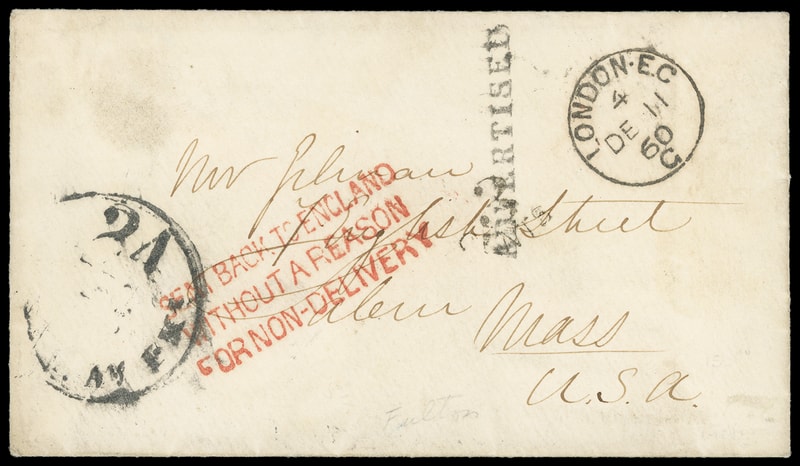 ADVERTISED
LONDON·E.C
4
DE 11
60
C
Mr Gilman
English Street
Salem
Mass
U.S.A.
SENT BACK TO ENGLAND
WITHOUT A REASON
FOR NON-DELIVERY
24
AM. PKT.
Fulton